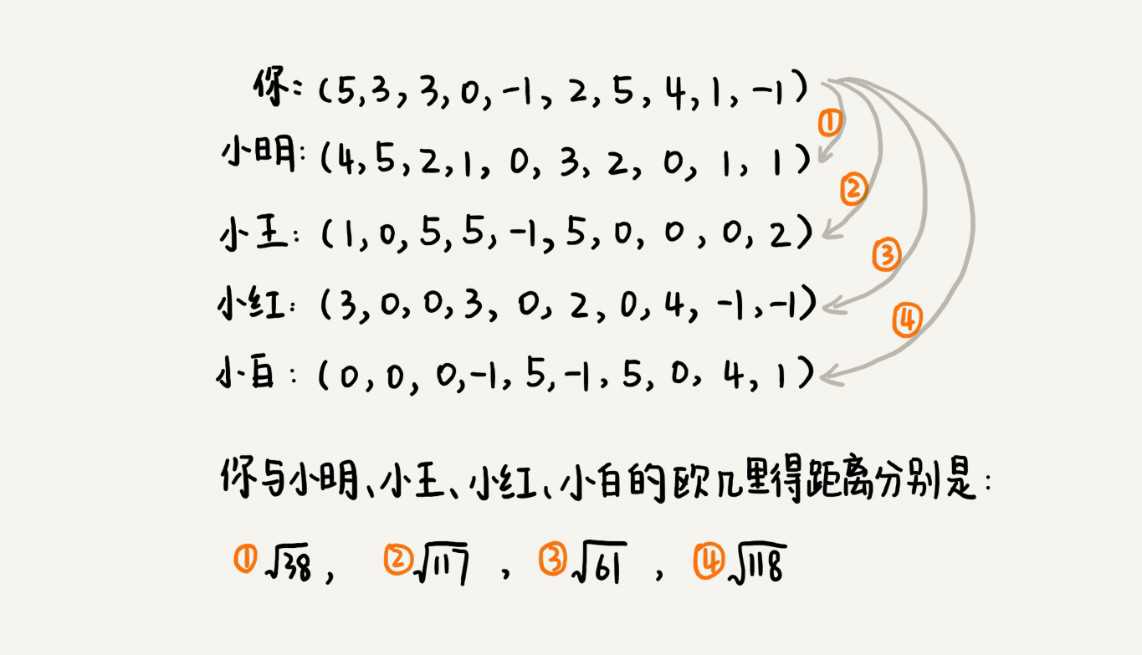 你: (5,3,3,0,-1,2,5,4,1,-1)
①
小明: (4,5,2,1,0,3,2,0,1,1)
②
小王: (1,0,5,5,-1,5,0,0,0,2)
③
小红: (3,0,0,3,0,2,0,4,-1,-1)
④
小白: (0,0,0,-1,5,-1,5,0,4,1)
你与小明、小王、小红、小白的欧几里得距离分别是:
①√38, ②√117, ③√61, ④√118